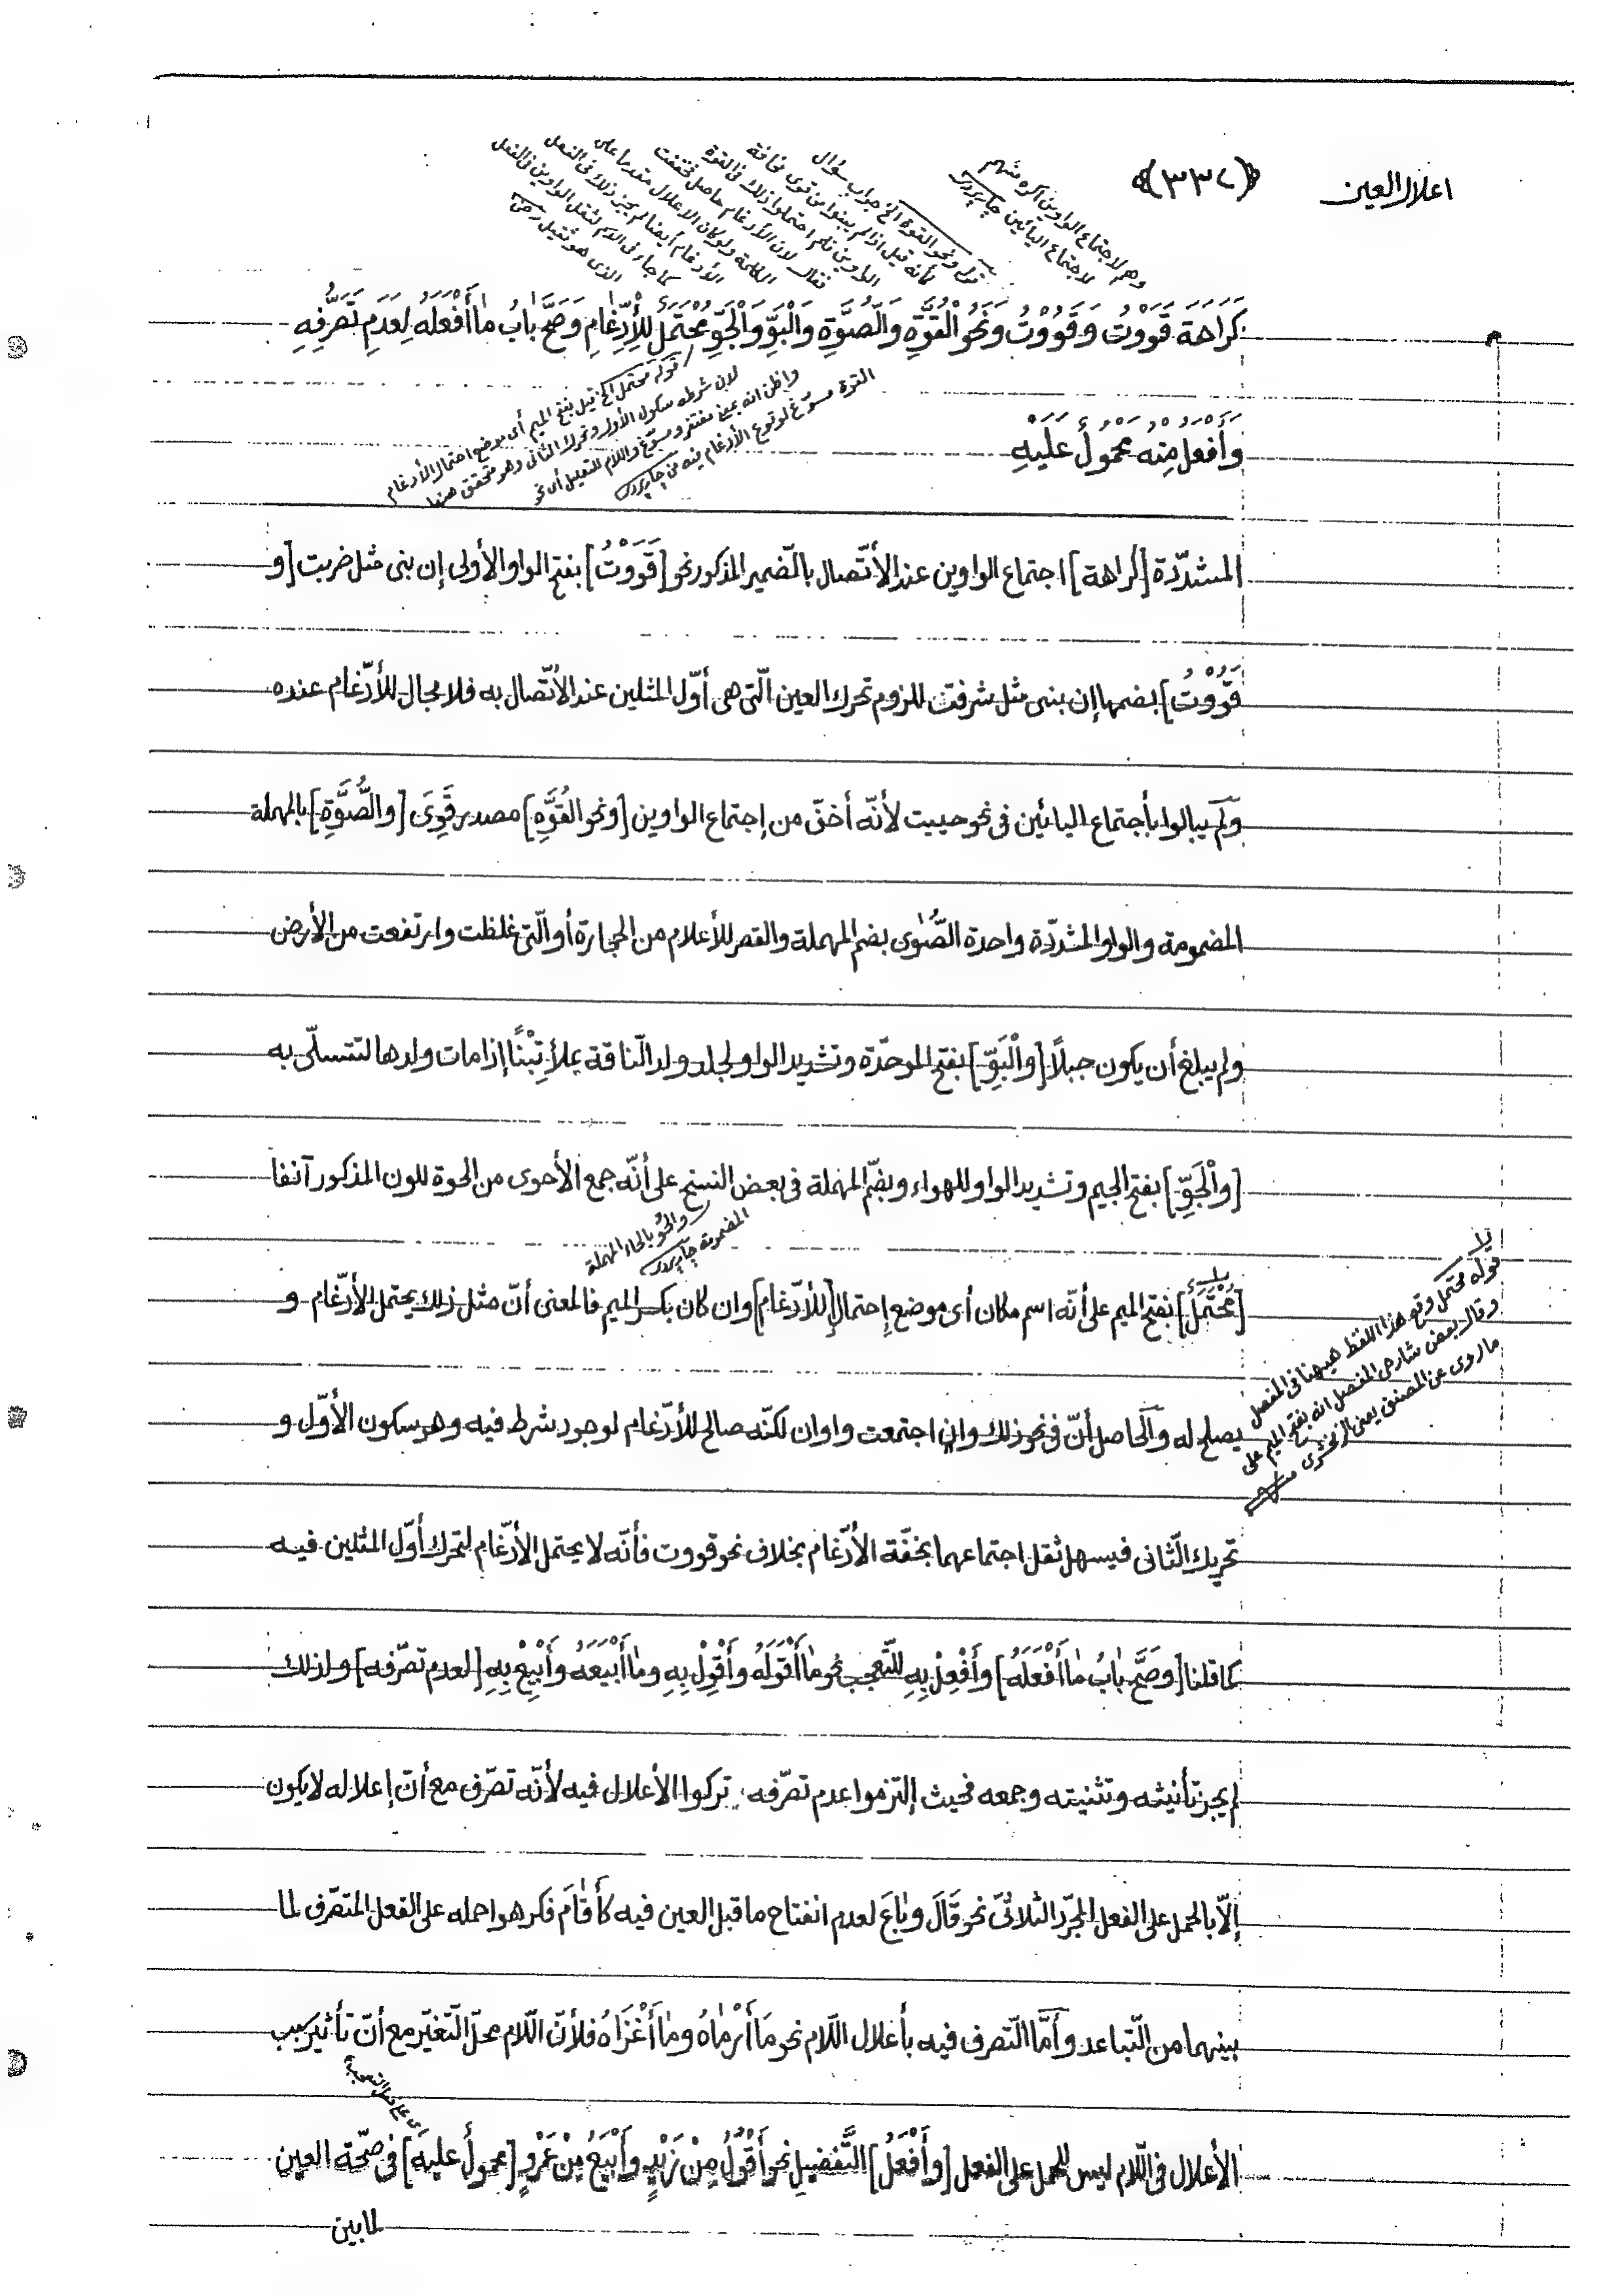 اعلال العين
﴿٣٣٧﴾
وهم لاجتماع الواوين أكره منهم
لاجتماع اليائين چارپردى
قوله ونحو القوة الخ جواب سؤال
كأنه قيل اذا لم يبنوا من قوى مخافة
الواوين فلم احتملوا ذلك فى القوة
فقال لان الأدغام حاصل فخففت
الكلمة ولو كان الاعلال مقدما على
الأدغام أيضا لم يجز ذلك فى الفعل
كما جاء فى الاسم لثقل الواوين فى الفعل
الذى هو ثقيل رضى
كَرَاهَةَ قَوَوْتُ وَقَوُوْتُ وَنَحْوُ الْقُوَّةِ وَالصُّوَّةِ وَالْبَوِّ وَالْجَوِّ مُحْتَمَلٌ لِلْأِدِّغَامِ وَصَحَّ بَابُ مَا أَفْعَلَهُ لِعَدَمِ تَصَرُّفِهِ
وَأَفْعَلُ مِنْهُ مَحْمُولٌ عَلَيْهِ
قوله محتمل الخ قيل بفتح الميم أى موضع احتمال الأدغام
لان شرطه سكون الأول وتحرك الثانى وهو متحقق هنا
واظن انه بمعنى مغتفر ومسوّغ واللام للتعليل أى نحو
القوة مسوّغ لوقوع الأدغام فيه من چارپردى
المشدّدة [كراهة] اجتماع الواوين عند الأتّصال بالضّمير المذكور نحو [قَوَوْتُ] بفتح الواو الأولى إن بنى مثل ضربت [و
قَوُوْتُ] بضمها إن بنى مثل شرفت للزوم تحرك العين الّتى هى أوّل المثلين عند الأتّصال به فلا مجال للأدّغام عنده
ولم يبالوا بأجتماع اليائين فى نحو حييت لأنّه أخفّ من إجتماع الواوين [ونحو القُوَّةِ] مصدر قَوِىَ [والصُّوَّةِ] بالمهملة
المضمومة والواو المشدّدة واحدة الصُّوٰى بضم المهملة والقصر للأعلام من الحجارة أو الّتى غلظت وارتفعت من الأرض
ولم يبلغ أن يكون جبلاً [وَالْبَوِّ] بفتح الموحّدة وتشديد الواو لجلد ولد النّاقة يملأ تِبْنًا إذا مات ولدها لتتسلّى به
[وَالْجَوِّ] بفتح الجيم وتشديد الواو للهواء وبضمّ المهملة فى بعض النسخ على أنّه جمع الأحوى من الحوة للون المذكور آنفا
والحُو بالحاء المهملة
المضمومة چارپردى
[مُحْتَمَلٌ] بفتح الميم على أنّه اسم مكان أى موضع إحتمال [للأدّغام] وان كان بكسر الميم فالمعنى أنّ مثل ذلك يحتمل الأدّغام و
قوله محتمل وقع هذا اللفظ هيهنا فى المفصل
وقال بعض شارحى المفصل انه بفتح الميم على
ما روى عن المصنف يعنى الزمخشرى
يصلح له والحاصل أنّ فى نحو ذلك وان اجتمعت واوان لكنّه صالح للأدّغام لوجود شرط فيه وهو سكون الأوّل و
تحريك الثّانى فيسهل ثقل اجتماعهما بخفّة الأدّغام بخلاف نحو قووت فأنّه لا يحتمل الأدّغام لتحرك أوّل المثلين فيه
كما قلنا [وصَحَّ بَابُ مَا أَفْعَلَهُ] وأَفْعِلْ بِهِ للتّعجب نحو مَا أَقْوَلَهُ وأَقْوِلْ بِهِ ومَا أَبْيَعَهُ وأَبْيِعْ بِهِ [لعدم تصّرفه] ولذلك
لم يجز تأنيثه وتثنيته وجمعه فحيث إلتزموا عدم تصرّفه تركوا الأعلال فيه لأنّه تصرّف مع أنّ إعلاله لا يكون
إلّا بالحمل على الفعل المجرّد الثلاثىّ نحو قَالَ وبَاعَ لعدم انفتاح ما قبل العين فيه كأَقَامَ فكرهوا حمله على الفعل المتصّرف لما
بينهما من التّباعد وأمّا التّصرف فيه بأعلال اللّام نحو مَا أَرْمَاهُ ومَا أَغْزَاهُ فلأنّ اللّام محلّ التّغيّر مع أنّ تأثير سبب
الأعلال فى اللّام ليس للحمل على الفعل [وأَفْعَلُ] التَّفضيلِ نحو أَقْوَلُ مِنْ زَيْدٍ وأَبْيَعُ مِنْ عَمْروٍ [محمولٌ عليهِ] فى صحّة العين
أى على فعل التعجب
لما بين